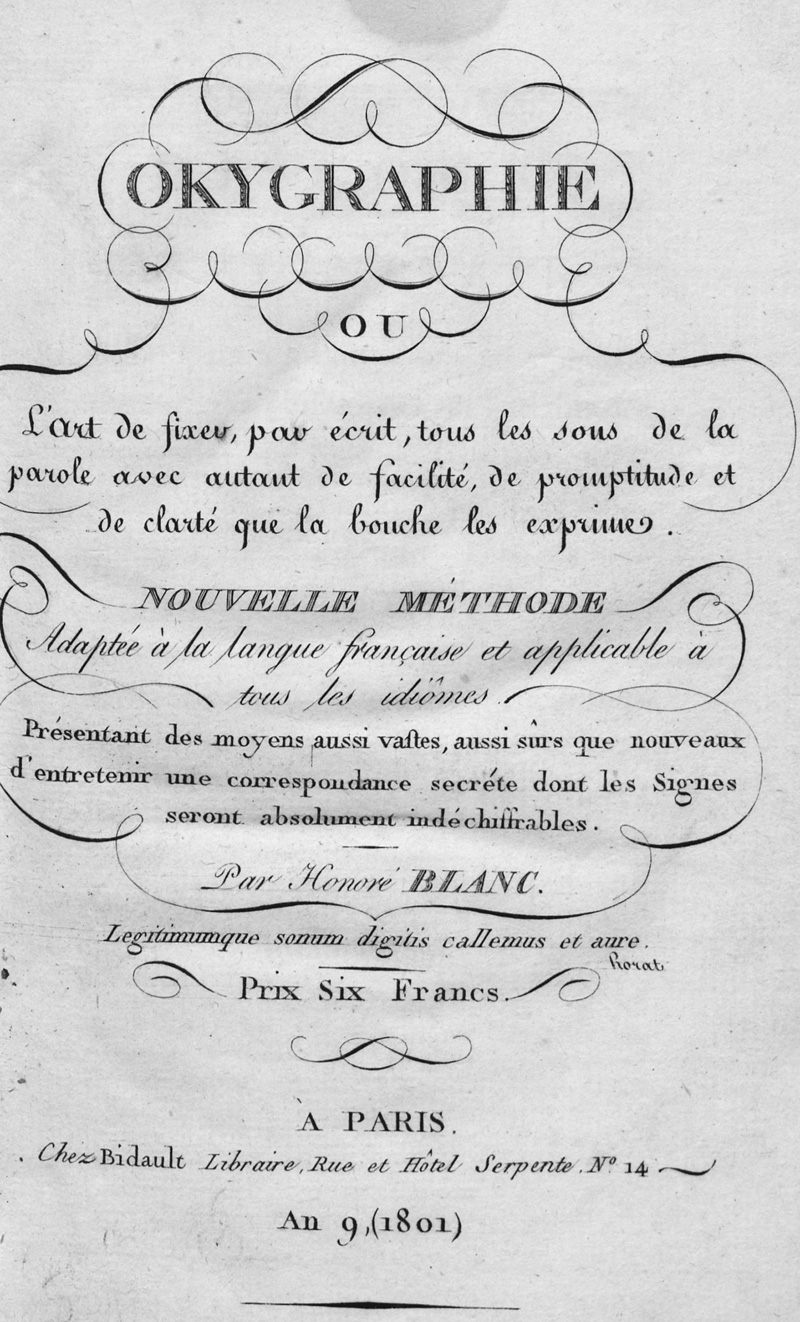 OKYGRAPHIE
OU
L'art de fixer, par écrit, tous les sons de la
parole avec autant de facilité, de promptitude et
de clarté que la bouche les exprime.
NOUVELLE MÉTHODE
Adaptée à la langue française et applicable à
tous les idiômes.
Présentant des moyens aussi vastes, aussi sûrs que nouveaux
d'entretenir une correspondance secréte dont les Signes
seront absolument indéchiffrables.
Par Honoré BLANC.
Legitimumque sonum digitis callemus et aure.
horat
Prix Six Francs.
À PARIS.
Chez Bidault Libraire, Rue et Hôtel Serpente. Nº 14
An 9, (1801)